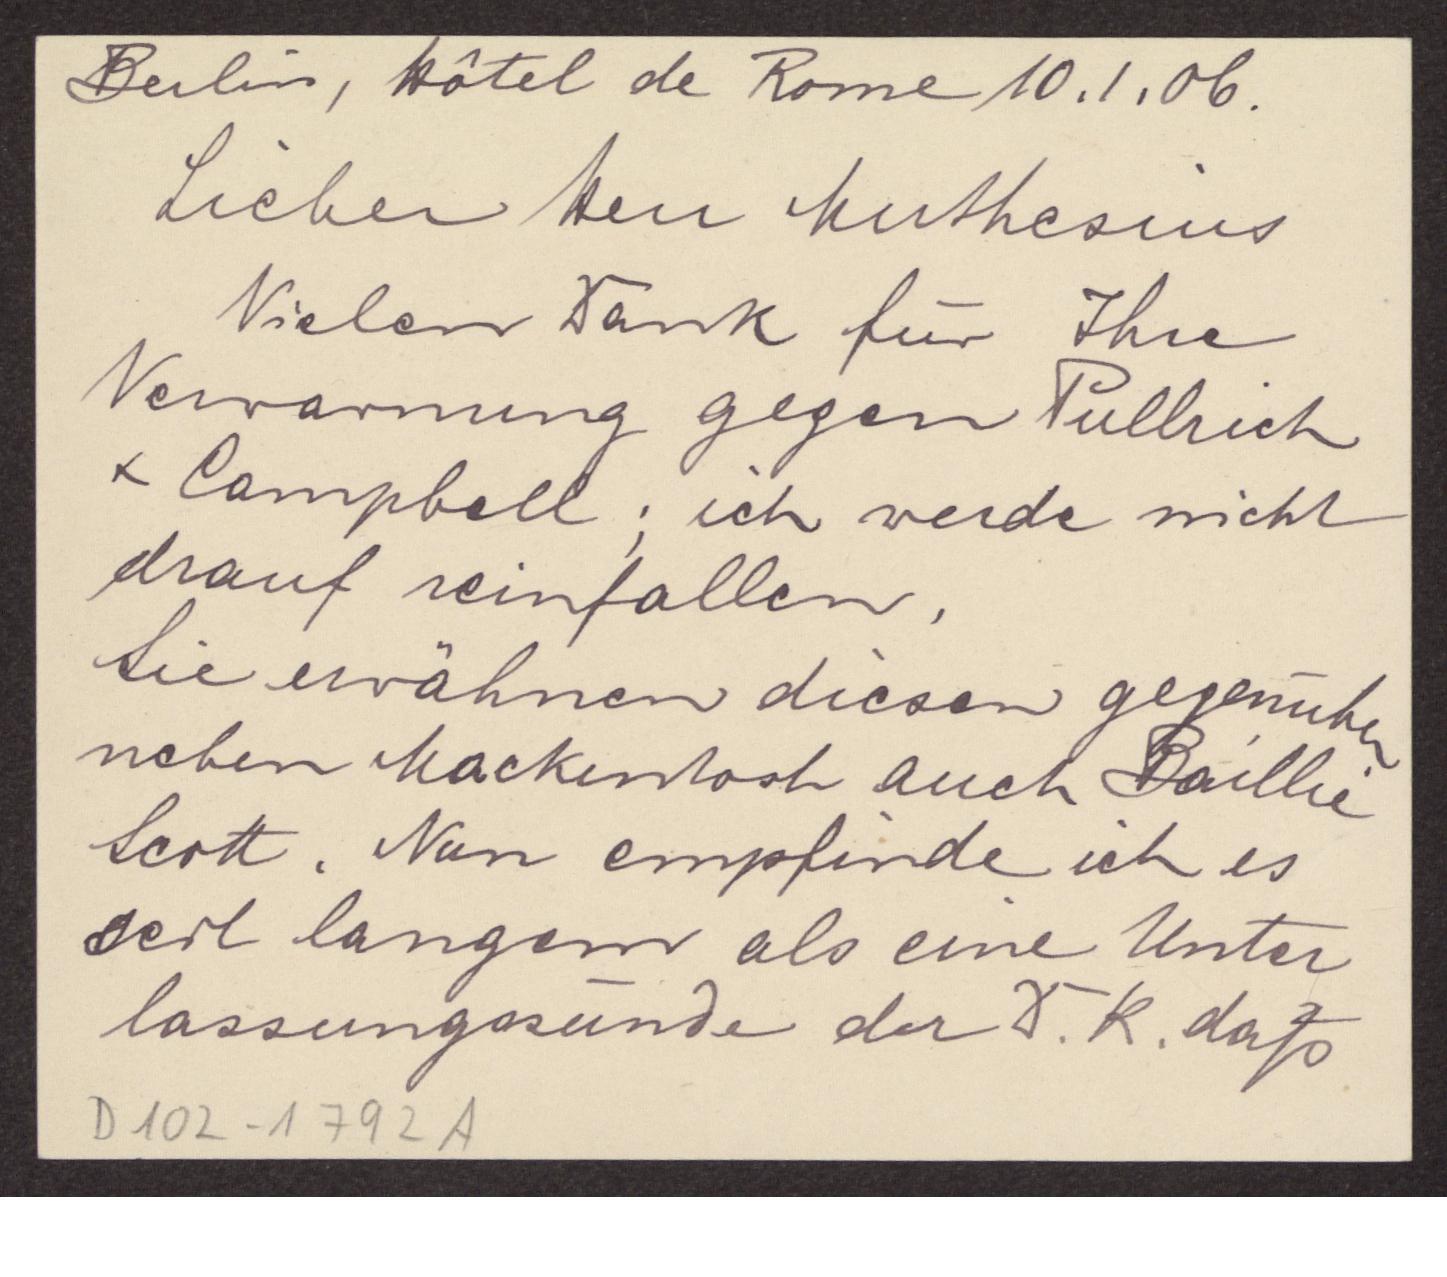 Berlin, Hôtel de Rome 10.1.06.
Lieber Herr Muthesius
Vielen Dank für Ihre
Verwarnung gegen Pullrich
& Campbell; ich werde nicht
drauf reinfallen.
Sie erwähnen diesen gegenüber
neben Mackintosh auch Baillie
Scott. Nun empfinde ich es
seit langem als eine Unter
lassungssünde der D. K. daß
D 102-1792 A